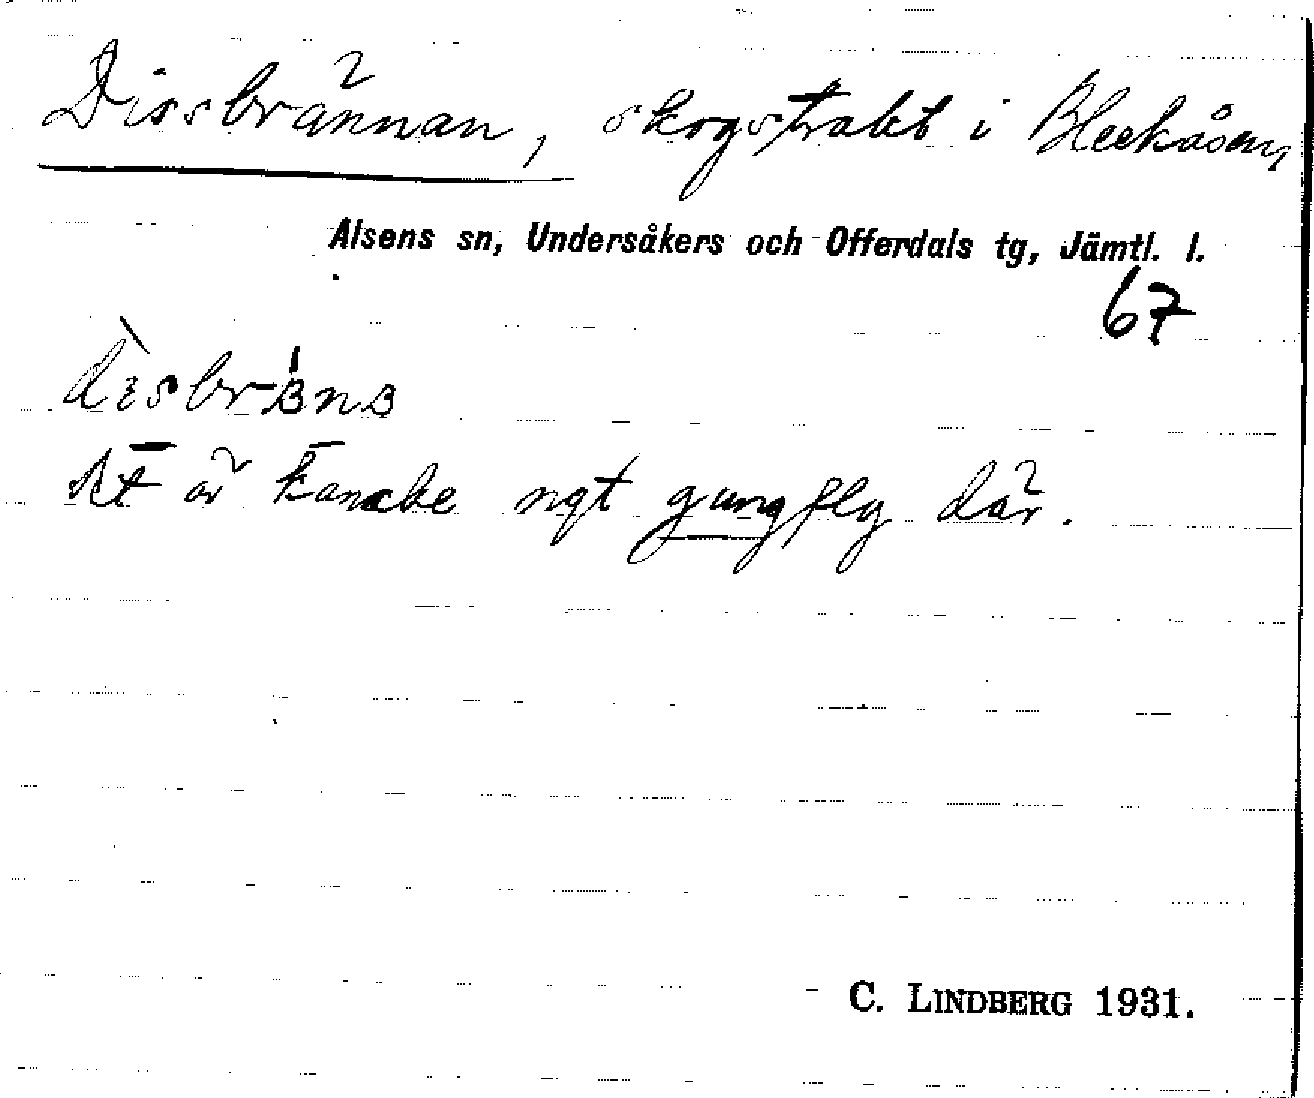 Dissbrännan, skogstrakt i Bleckåsen,
Alsens sn, Undersåkers och Offerdals tg, Jämtl. l.
67
Det är kanske ngt gungfly där.
C. LINDBERG 1931.